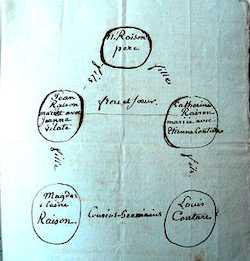 N. Raison
pere
fils
fille
Jean
Raison
marié avec
Jeanne
Vilate
frere et Soeur
Catherine
Raison
mariée avec
Etienne Couture
fille
fils
Magde
Raison
Cousins Germains
Louis
Couture